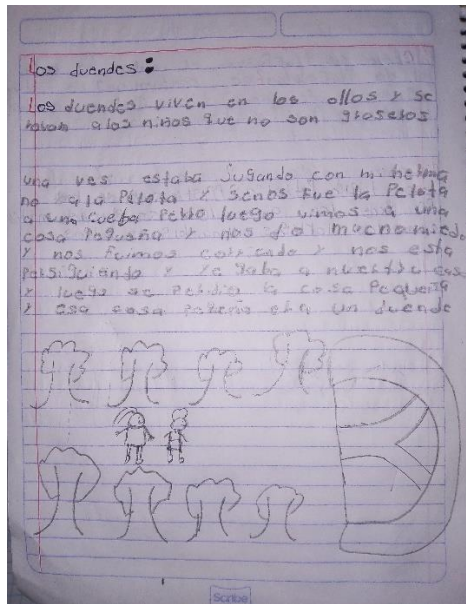 Los duendes:
Los duendes viven en los ollos y se
roban a los niños que no son groseros
una ves estaba Jugando con mi herma
no a la Pelota y se nos fue la Pelota
a una cueba Perro luego vimos a una
cosa Pequeña y nos dio mucho miedo
y nos fuimos corriendo y nos esta
Persiguiendo y a nuestra casa
y luego se Perdio la cosa Pequeña
y esa cosa Pequeña era un duende
Scribe